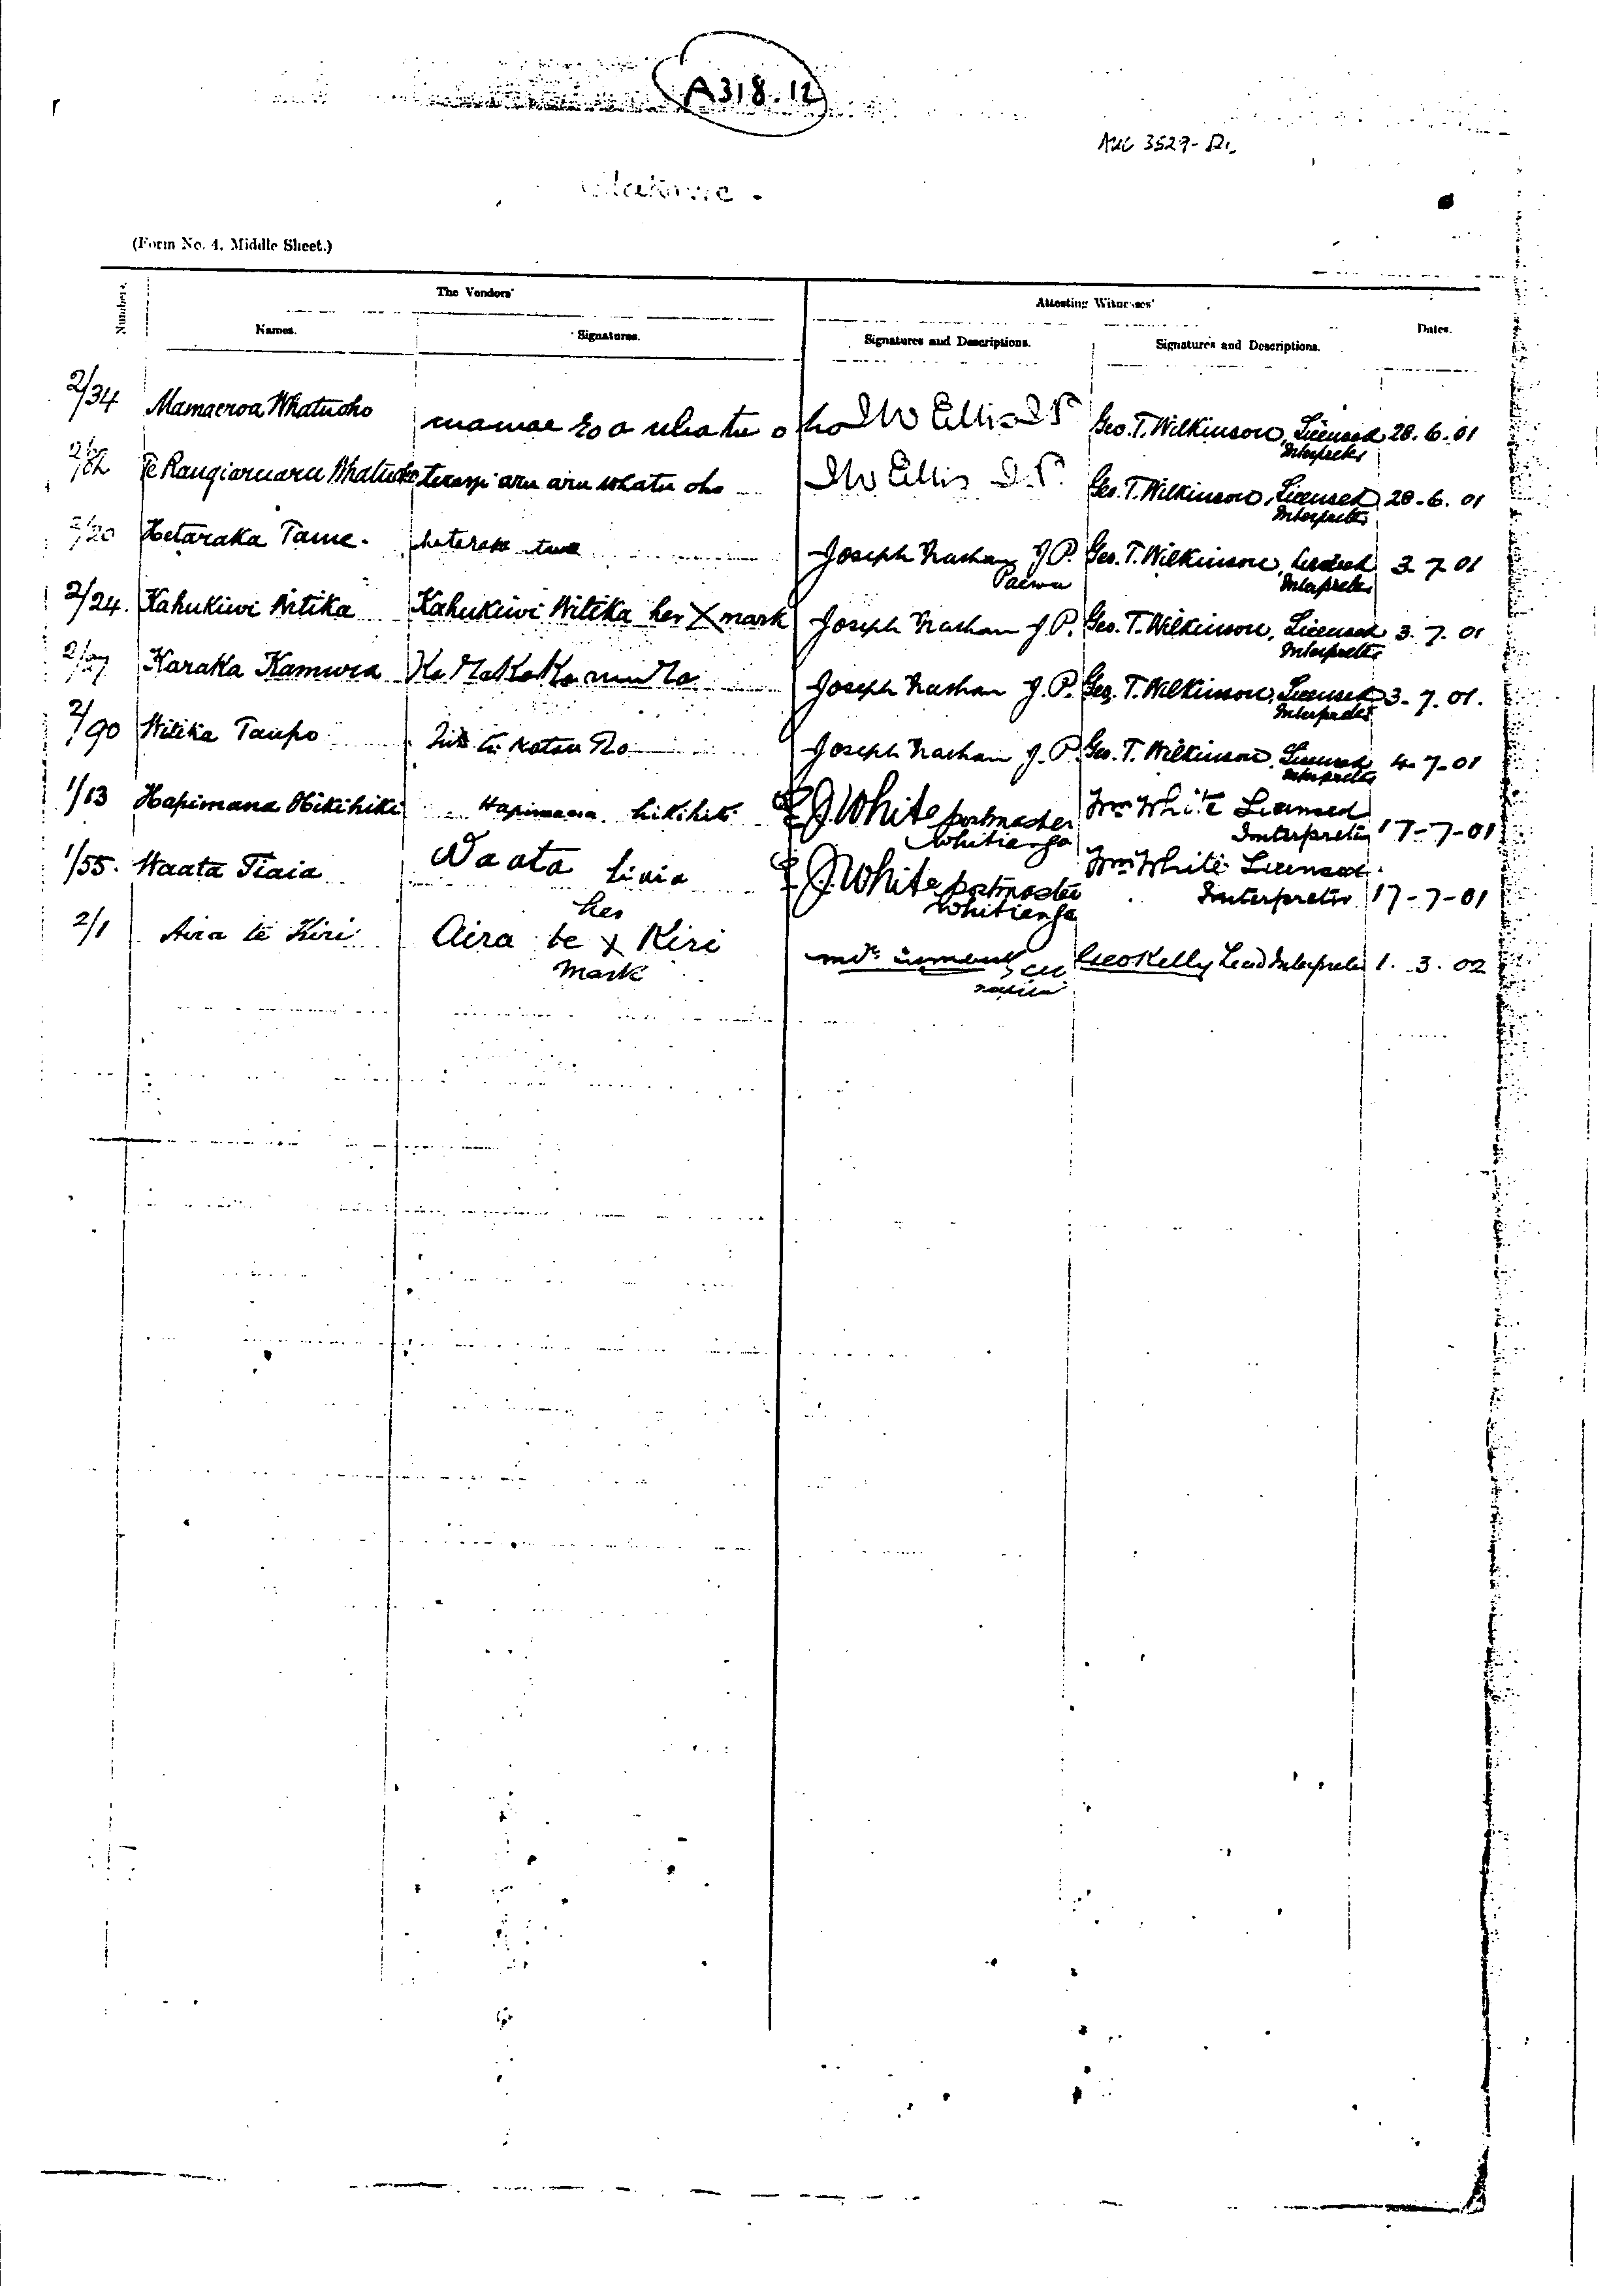 A318.12
AUC 3529-
(Form No. 4. Middle Sheet.)
Numbers. The Vendors' Attesting Witnesses' Dates.
Names. Signatures. Signatures and Descriptions. Signatures and Descriptions.
2/34 Mamaeroa Whatuoho mamae roa whatu oho J W Ellis J.P. Geo. T. Wilkinson, Licensed Interpreter 28.6.01
Te Rangiaruaru Whatuoho terangi aru aru whatu oho J W Ellis J.P. Geo. T. Wilkinson, Licensed Interpreter 28.6.01
2/20 Hetaraka Tame. Joseph Nathan J.P. Paeroa Geo. T. Wilkinson, Licensed Interpreter 3 7 01
2/24. Kahukiwi Witika Kahukiwi Witika her X mark Joseph Nathan J.P. Geo. T. Wilkinson, Licensed Interpreter 3.7.01
2/27 Karaka Kamura Joseph Nathan J.P. Geo. T. Wilkinson, Licensed Interpreter 3.7.01.
2/90 Witika Taupo Joseph Nathan J.P. Geo. T. Wilkinson, Licensed Interpreter 4-7-01
1/13 Hapimana Hikihiki Hapimana hikihiki E J. White postmaster Whitianga Wm White Licensed Interpreter 17-7-01
1/55. Waata Tiaia Waata tiaia E J. White postmaster Whitianga Wm White Licensed Interpreter 17-7-01
2/1 Aira te Kiri Aira te her X mark Kiri Geo Kelly Licd Interpreter 1.3.02